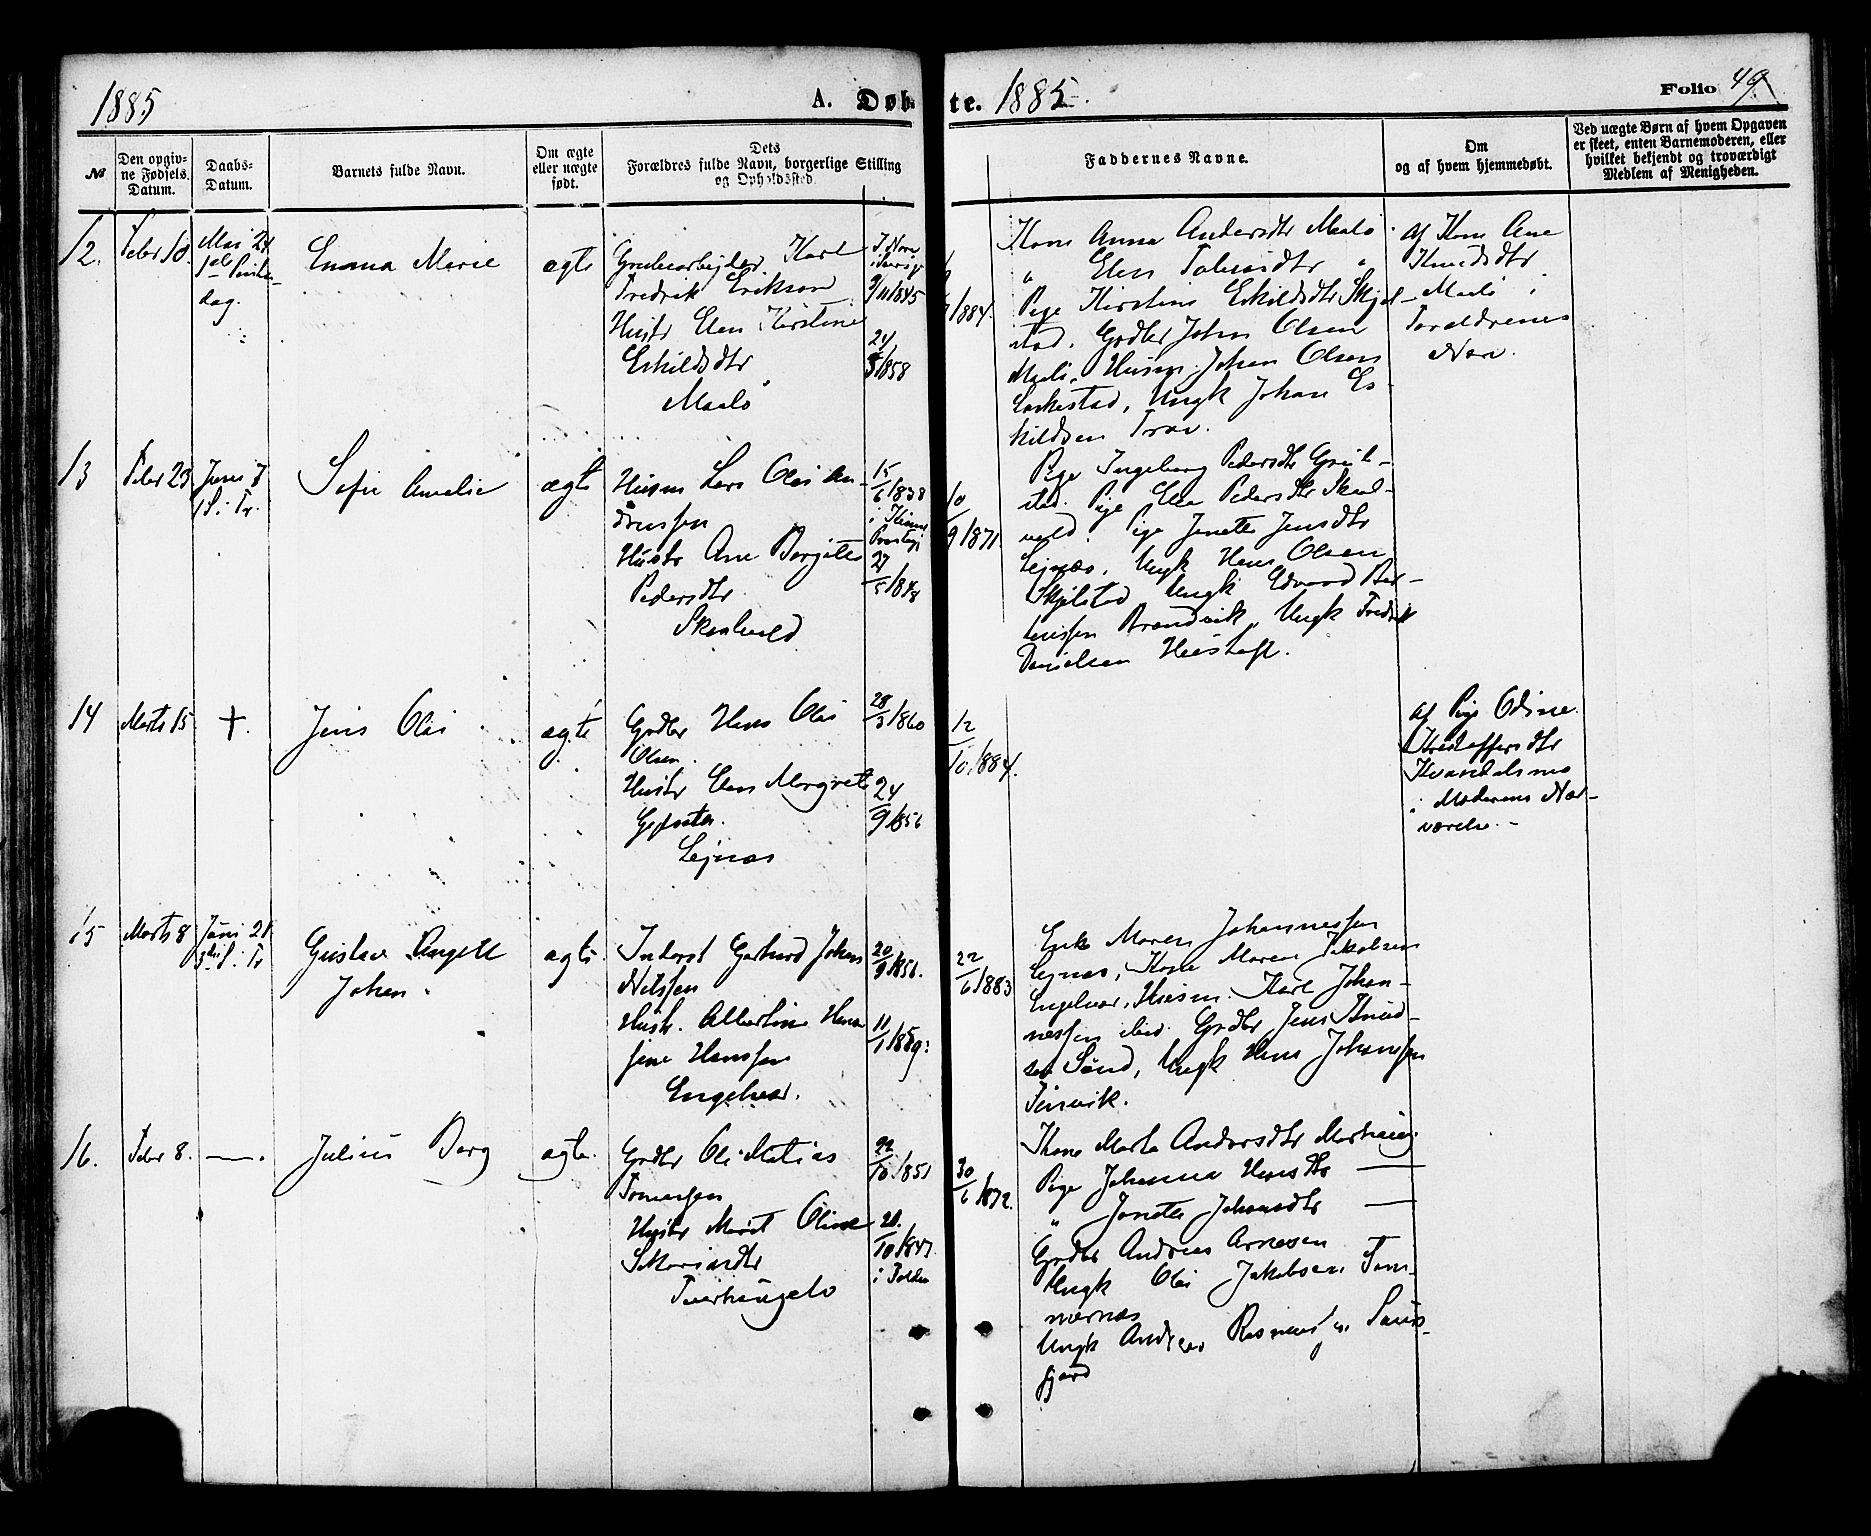 1885
A. Døb-
te. 1885.
Folio 49
№
Den opgiv-
ne Fødsels-
Datum.
Daabs-
Datum.
Barnets fulde Navn.
Om ægte
eller uægte
født.
Dets
Forældres fulde Navn, borgerlige Stilling
og Opholdssted.
Faddernes Navne.
Om
og af hvem hjemmedøbt.
Ved uægte Børn af hvem Opgaven
er skeet, enten Barnemoderen, eller
hvilket bekjendt og troværdigt
Medlem af Menigheden.
12.
Febr 10.
Mai 24
1ste Pintse-
dag.
Emma Marie
ægte
Grubearbejder Karl
Fredrik Erikson
Hustr Elen Kirstine
Eskildsdtr
Maalø
9/11 1845
24/5 1858
1884.
Kone Anna Andersdtr Maalø
" Elen
Pige Kirstine Eskildsdtr Skjel-
stad, Grdbr Johan Olsen
Maalø, Husm. Johan Olsen
Ungk Johan Es-
kildsen
af Kone Ane
Knudsdtr
Maalø i
Forældrenes
Nær.
13
Febr 23
Juni 7
1 S. i Tr.
Sofie Amalie
ægte
Husm Lars Olai An-
dreassen
Hustr Ane Bergitte
Pedersdtr
Skarlveld
15/6 1838
27/5 1848
10/9 1871.
Pige Ingeborg Pedersdtr
stad. Pige Elen Pedersdtr Skarl-
veld. Pige Jonette Jensdtr
Lejnæs, Ungk Hans Olsen
Skjelstad Ungk Edvard Ber-
Brandvik, Ungk Fredrik
Danielsen
14
Marts 15
+.
Jens Olai
ægte
Grdbr Hans Olai
Olsen.
Hustr Elen Margrete
Lejnæs
28/3 1860
24/9 1856
12/10 1884.
af Pige Odine
Kristoffersdtr
Kvandalsmo
i Moderens Nær-
værelse.-
15
Marts 8
Juni 21
3die S. i Tr
Gustav Angell
Johan.
ægte.
Inderst Gerhard Johan
Nilssen
Hustr. Albertine Han-
sine Hanssen
Engelvær.
20/9 1856.
11/1 1859.
22/6 1883
Enke Maren Johannessen
Lejnæs, Kone Maren Jakobsen
Engelvær, Husm. Karl Johan-
nessen ibid. Grdbr Jens Knud-
sen Sund, Ungk Hans Johanssen
16.
Febr 8.
—.
Julius Berg
ægte.
Grdbr Ole Matias
Tomassen
Hustr Marit Oline
Sakariasdtr
22/10 1851
21/10 1847
i Folden
30/6 1872.
Kone Marta Andersdtr
Pige Johanna Hansdtr —
" Jonette Johansdtr —
Grdbr Andreas Arnesen
Ungk Olai Jakobsen Tøm-
mernæs
Ungk Andreas
gjord